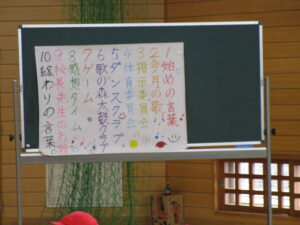 1始めの言葉
2今月の歌
3掲示委員会
4体育委員会
5ダンスクラブ
6歌の森太鼓クラブ
7ゲーム
8感想タイム
9校長先生のお話
10終わりの言葉